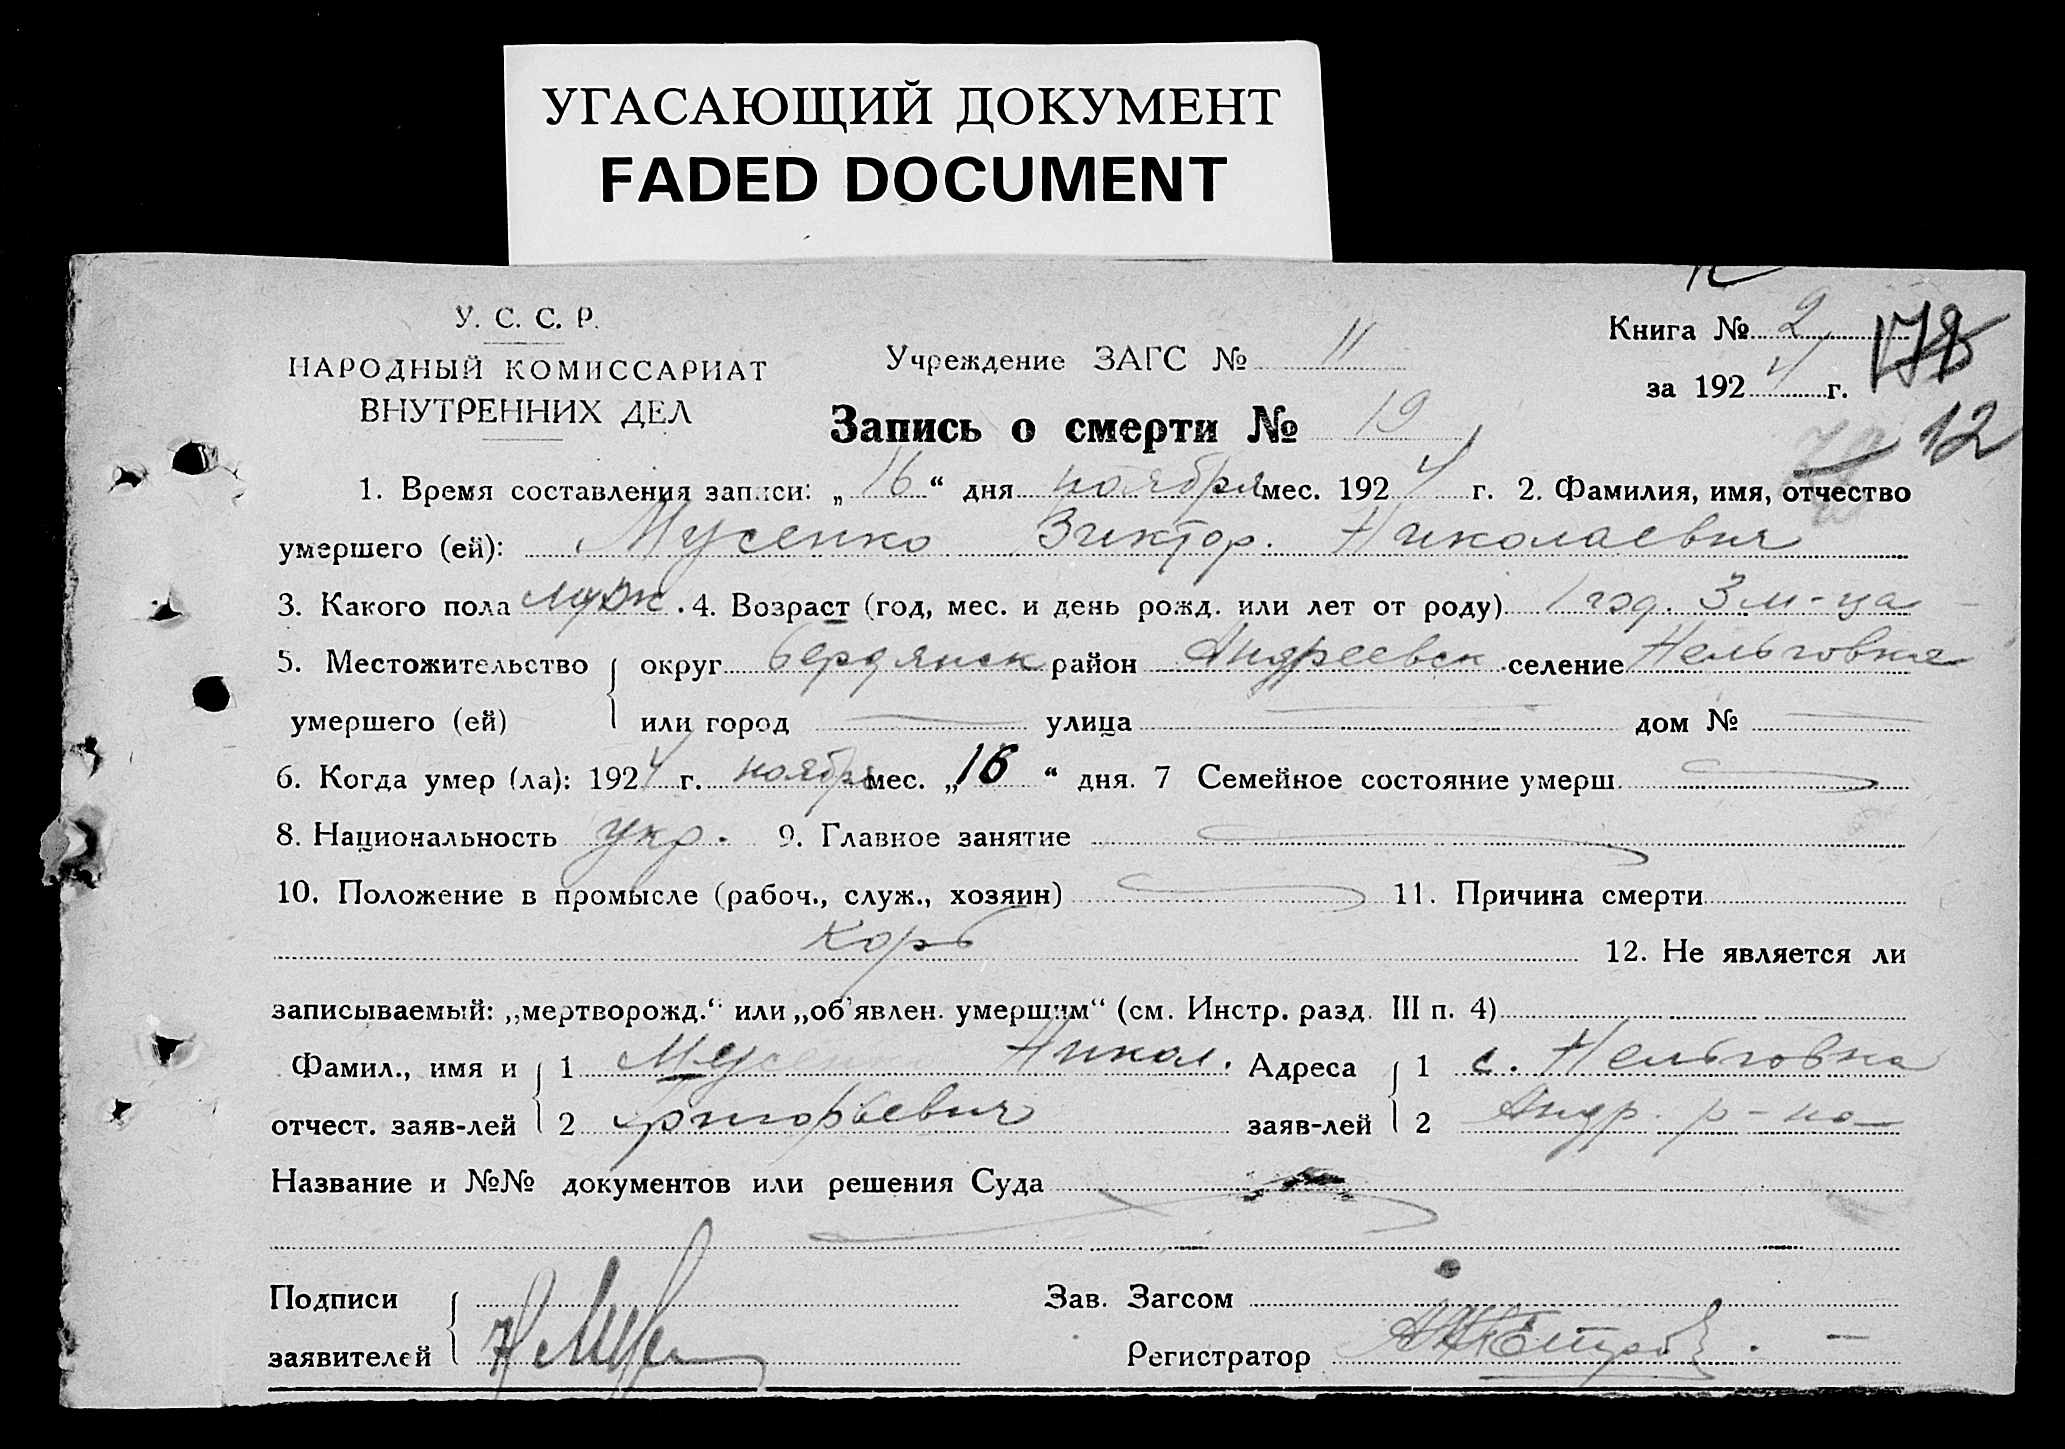 УГАСАЮЩИЙ ДОКУМЕНТ
FADED DOCUMENT
У. С. С. Р.
НАРОДНЫЙ КОМИССАРИАТ
ВНУТРЕННИХ ДЕЛ
Учреждение ЗАГС № 11
Книга № 2
за 1924 г.
12
Запись о смерти № 19
1. Время составления записи: „16“ дня ноября мес. 1924 г. 2. Фамилия, имя, отчество
умершего (ей): Мусенко Виктор. Николаевич
3. Какого пола муж. 4. Возраст (год, мес. и день рожд. или лет от роду) 1 год. 3 м-ца
5. Местожительство округ Бердянск район Андреевск селение Нельговка
умершего (ей) или город — улица — дом № —
6. Когда умер (ла): 1924 г. ноября мес. „16“ дня. 7 Семейное состояние умерш.
8. Национальность укр. 9. Главное занятие
10. Положение в промысле (рабоч., служ., хозяин) 11. Причина смерти
Корь 12. Не является ли
записываемый: „мертворожд.“ или „об'явлен. умершим“ (см. Инстр. разд. III п. 4)
Фамил., имя и 1 Мусенко Никол. Адреса 1 с. Нельговка
отчест. заяв-лей 2 Григорьевич заяв-лей 2 Андр. р-на
Название и №№ документов или решения Суда
Подписи Зав. Загсом
заявителей Регистратор